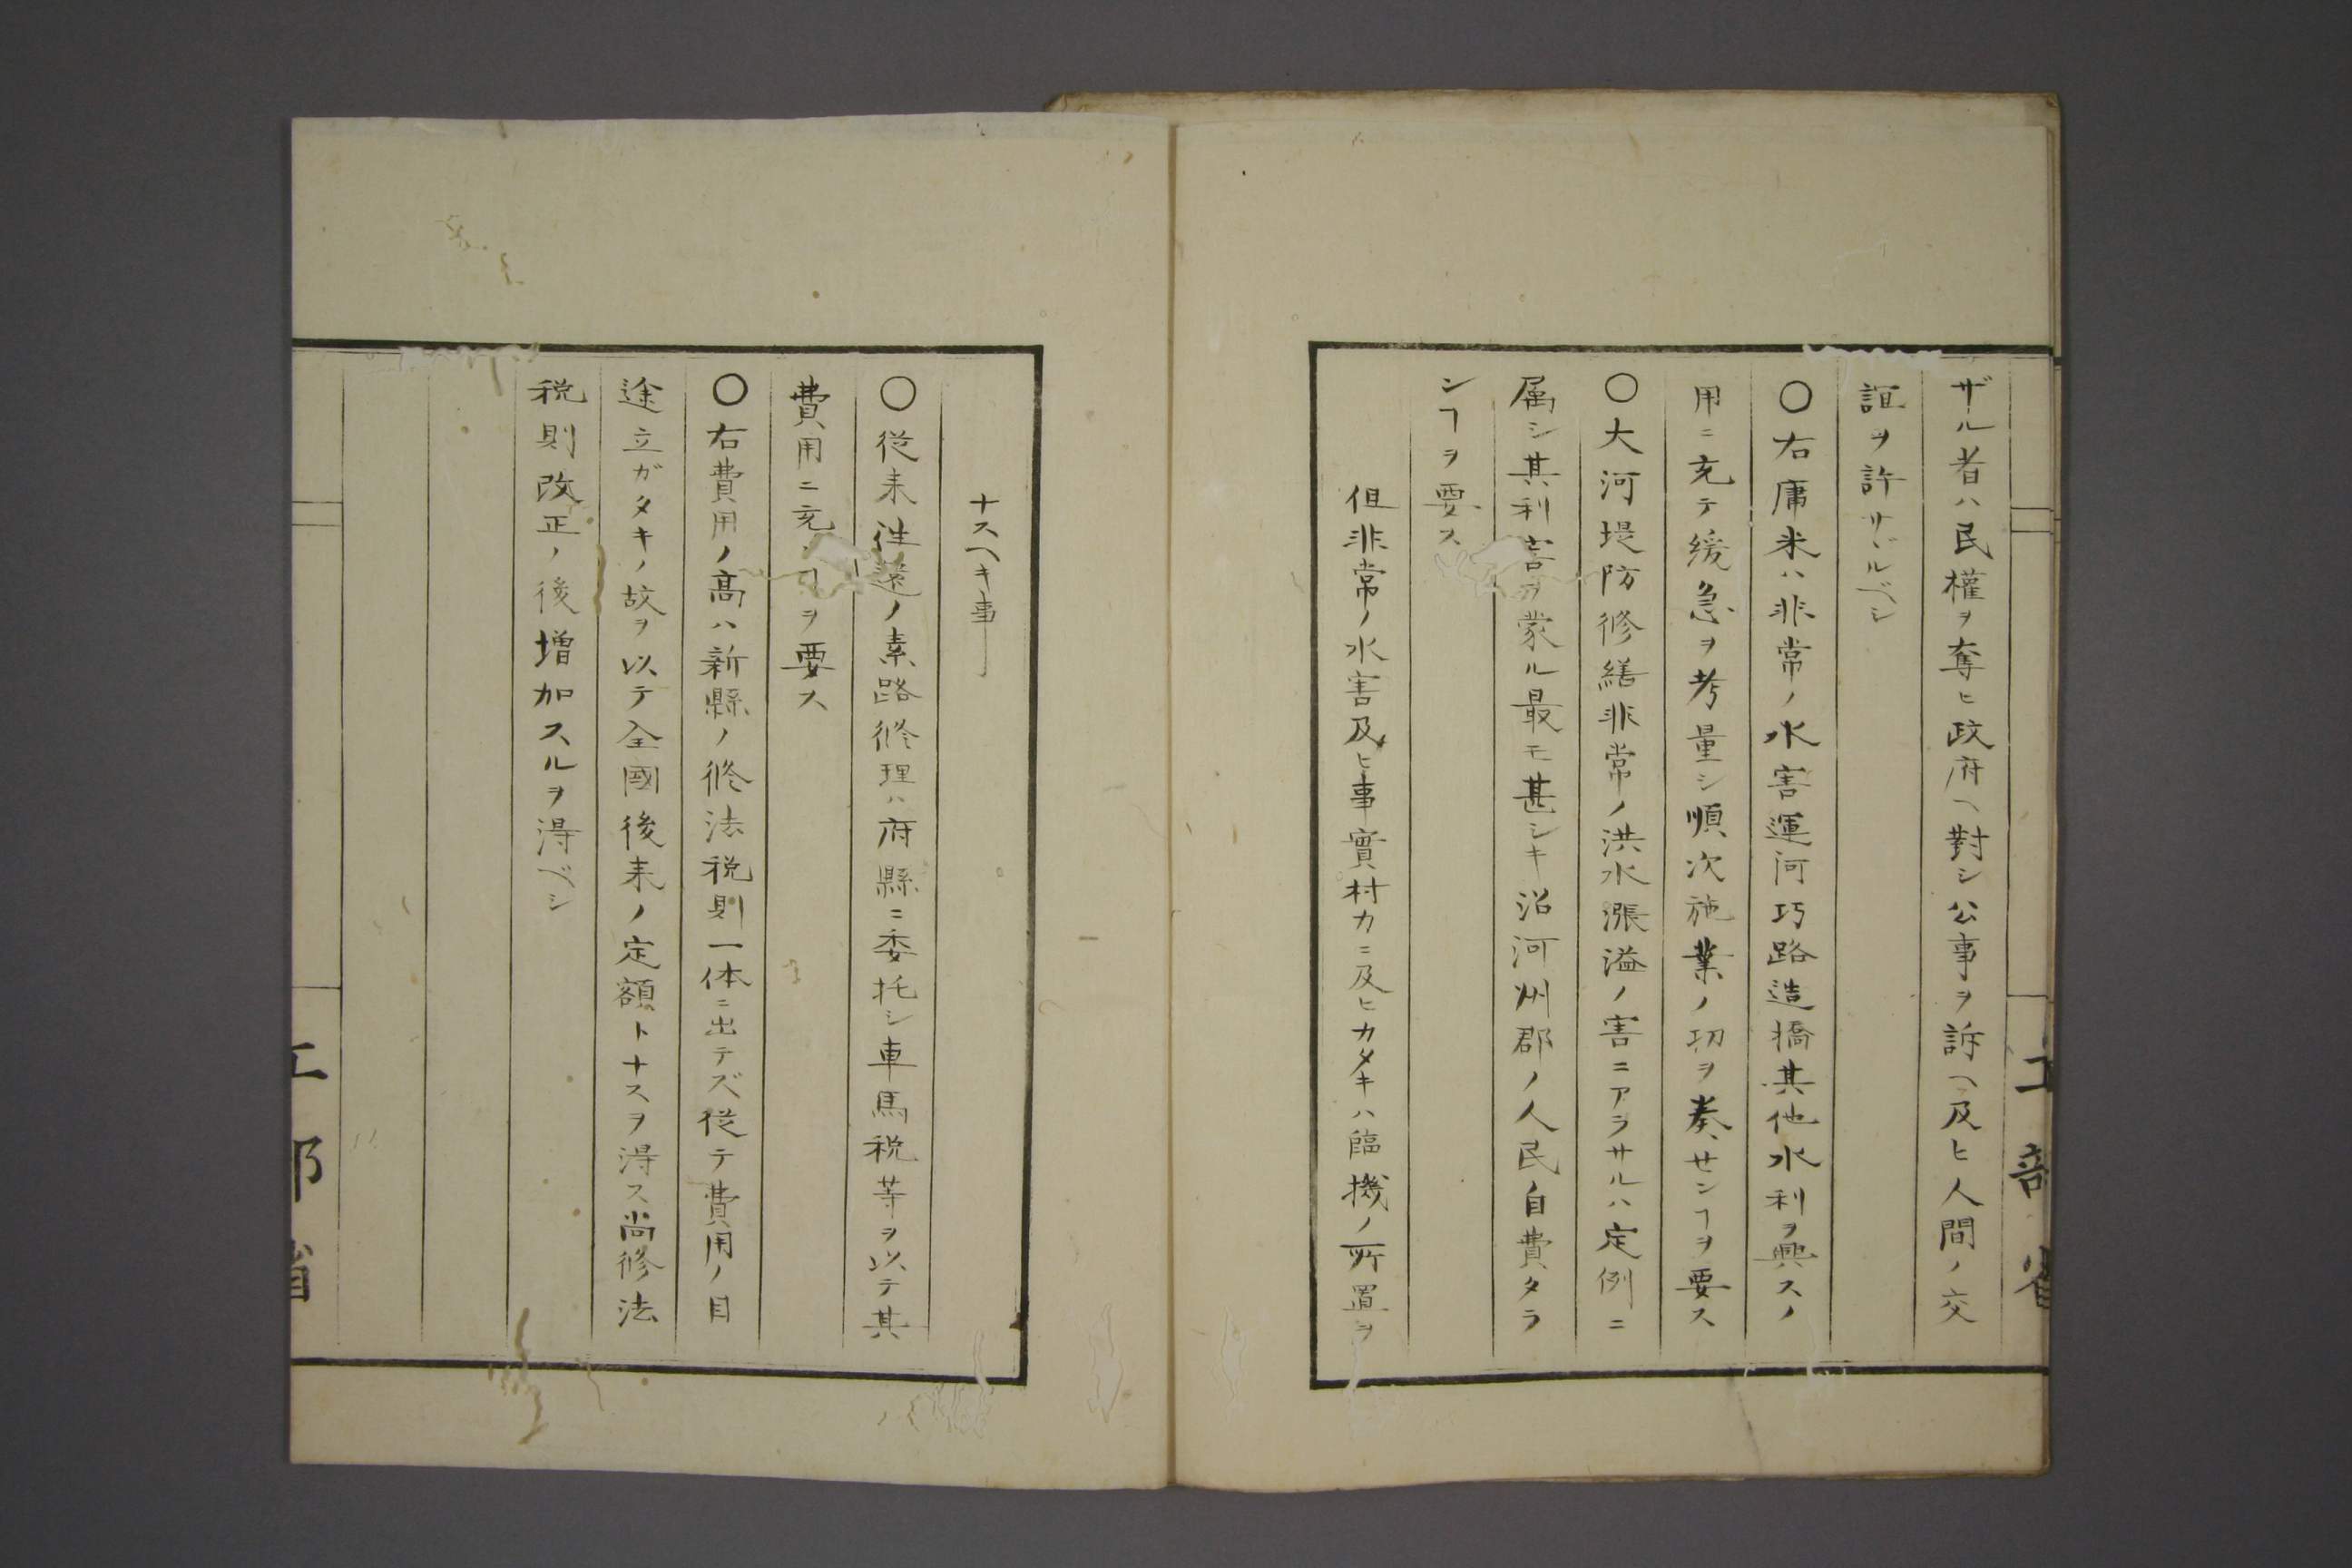 ザル者ハ民權ヲ奪ヒ政府ヘ對シ公事ヲ訴ヘ及ヒ人間ノ交
誼ヲ許サヾルベシ
〇右庸米ハ非常ノ水害運河巧路造橋其他水利ヲ興スノ
用ニ充テ緩急ヲ考量シ順次施業ノ功ヲ奏センヿヲ要ス
〇大河堤防修繕非常ノ洪水漲溢ノ害ニアラサルハ定例ニ
属シ其利害ヲ蒙ル最モ甚シキ沿河州郡ノ人民自費タラ
シヿヲ要ス
但非常ノ水害及ヒ事實村力ニ及ヒカタキハ臨機ノ所置ヲ
工部省
ナスヘキ事
〇從来往還ノ素路修理ハ府縣ニ委托シ車馬税等ヲ以テ其
費用ニ充ヿヲ要ス
〇右費用ノ髙ハ新縣ノ修法税則一体ニ出テズ從テ費用ノ目
途立ガタキノ故ヲ以テ全國後来ノ定額トナスヲ得ス尚修法
税則改正ノ後增加スルヲ得ベシ
工部省